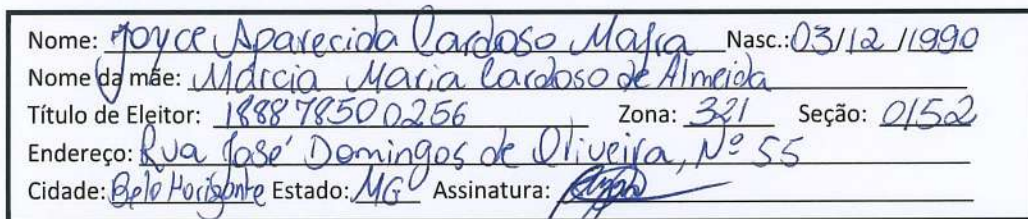 Nome: Joyce Aparecida Cardoso Mafra Nasc.: 03/12/1990
Nome da mãe: Márcia Maria Cardoso de Almeida
Título de Eleitor: 188878500256 Zona: 321 Seção: 0152
Endereço: Rua José Domingos de Oliveira, Nº 55
Cidade: Belo Horizonte Estado: MG Assinatura: